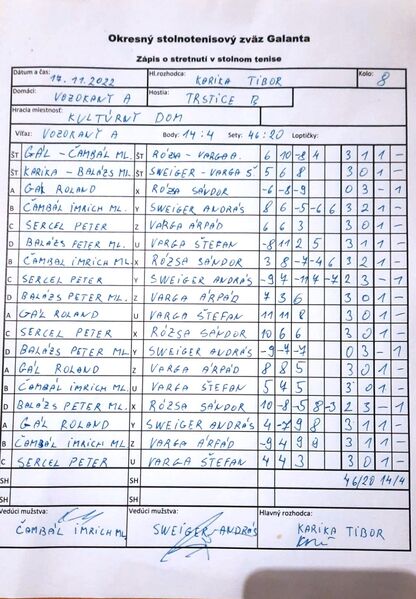 Okresný stolnotenisový zväz Galanta
Zápis o stretnutí v stolnom tenise
Dátum a čas: 17.11.2022 Hl.rozhodca: KARIKA TIBOR Kolo: 8
Domáci: VOZOKANY A Hostia: TRSTICE B
Hracia miestnosť: KULTÚRNY DOM
Víťaz: VOZOKANY A Body: 14:4 Sety: 46:20 Loptičky:
ŠT GÁL - ČAMBÁL ML. ŠT RÓZSA - VARGA A. 6 10 -8 4 3 1 1 -
ŠT KARIKA - BALÁZS ML. ŠT SWEIGER - VARGA Š 5 6 8 3 0 1 -
A GÁL ROLAND X RÓZSA SÁNDOR -6 -8 -9 0 3 - 1
B ČAMBÁL IMRICH ML. Y SWEIGER ANDRÁS 8 6 -5 -6 6 3 2 1 -
C SERCEL PETER Z VARGA ÁRPÁD 6 6 3 3 0 1 -
D BALÁZS PETER ML. U VARGA ŠTEFAN -8 11 2 5 3 1 1 -
B ČAMBÁL IMRICH ML. X RÓZSA SÁNDOR 3 8 -7 -4 6 3 2 1 -
C SERCEL PETER Y SWEIGER ANDRÁS -9 7 -11 4 -7 2 3 - 1
D BALÁZS PETER ML. Z VARGA ÁRPÁD 7 3 6 3 0 1 -
A GÁL ROLAND U VARGA ŠTEFAN 11 11 8 3 0 1 -
C SERCEL PETER X RÓZSA SÁNDOR 10 6 6 3 0 1 -
D BALÁZS PETER ML. Y SWEIGER ANDRÁS -9 -7 -7 0 3 - 1
A GÁL ROLAND Z VARGA ÁRPÁD 8 8 5 3 0 1 -
B ČAMBÁL IMRICH ML. U VARGA ŠTEFAN 5 4 5 3 0 1 -
D BALÁZS PETER ML. X RÓZSA SÁNDOR 10 -8 -5 8 -3 2 3 - 1
A GÁL ROLAND Y SWEIGER ANDRÁS 4 -7 9 8 3 1 1 -
B ČAMBÁL IMRICH ML. Z VARGA ÁRPÁD -9 4 9 8 3 1 1 -
C SERCEL PETER U VARGA ŠTEFAN 4 4 3 3 0 1 -
SH SH 46/20 14/4
SH SH
Vedúci mužstva: Vedúci mužstva: Hlavný rozhodca:
ČAMBÁL IMRICH ML. SWEIGER ANDRÁS KARIKA TIBOR